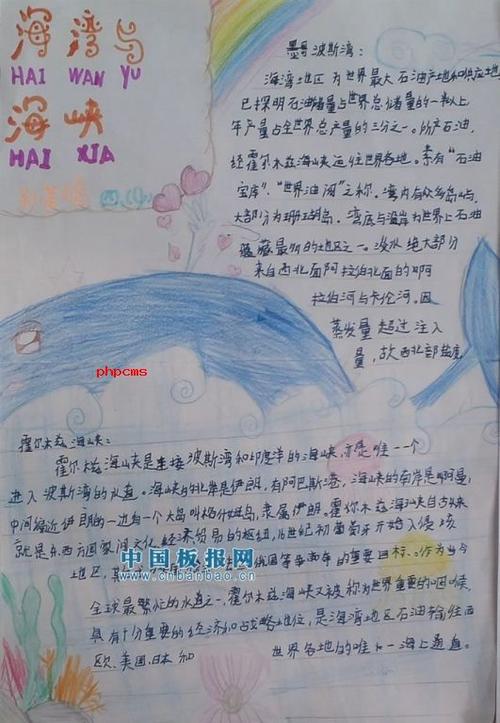 海湾与
HAI WAN YU
海峡
HAI XIA
四、(4)
墨哥波斯湾：
海湾地区为世界最大石油产地和供应地
已探明石油储量占世界总储量的一半以上
年产量占全世界总产量的三分之一。所产石油，
经霍尔木兹海峡运往世界各地。素有"石油
宝库"、"世界油阀"之称。湾内有众多岛屿,
大部分为珊瑚岛。湾底与沿岸为世界上石油
蕴藏最多的地区之一。淡水绝大部分
来自西北面阿拉伯北面的啊
拉伯河与卡伦河。因
蒸发量超过注入
量，故西北部盐度
phpcms
霍尔木兹海峡：
霍尔木兹海峡是连接波斯湾和印度洋的海峡，亦是唯一一个
进入波斯湾的水道。海峡的北岸是伊朗，有阿巴斯港，海峡的南岸是啊曼，
中间偏近伊朗的一边有一个大岛叫格什姆岛，隶属伊朗。霍尔木兹海峡自古以来
就是东西方国家间文化、经济、贸易的枢纽，16世纪初葡萄牙开始入侵该
地区，其 俄国等争夺的重要目标。作为当今
中国板报网
www.cnbanbao.cn
全球最繁忙的水道之一，霍尔木兹海峡又被称为世界重要的咽喉，
具有十分重要的经济和战略地位，是海湾地区石油输往西
欧、美国、日本和 世界各地的唯一海上通道。